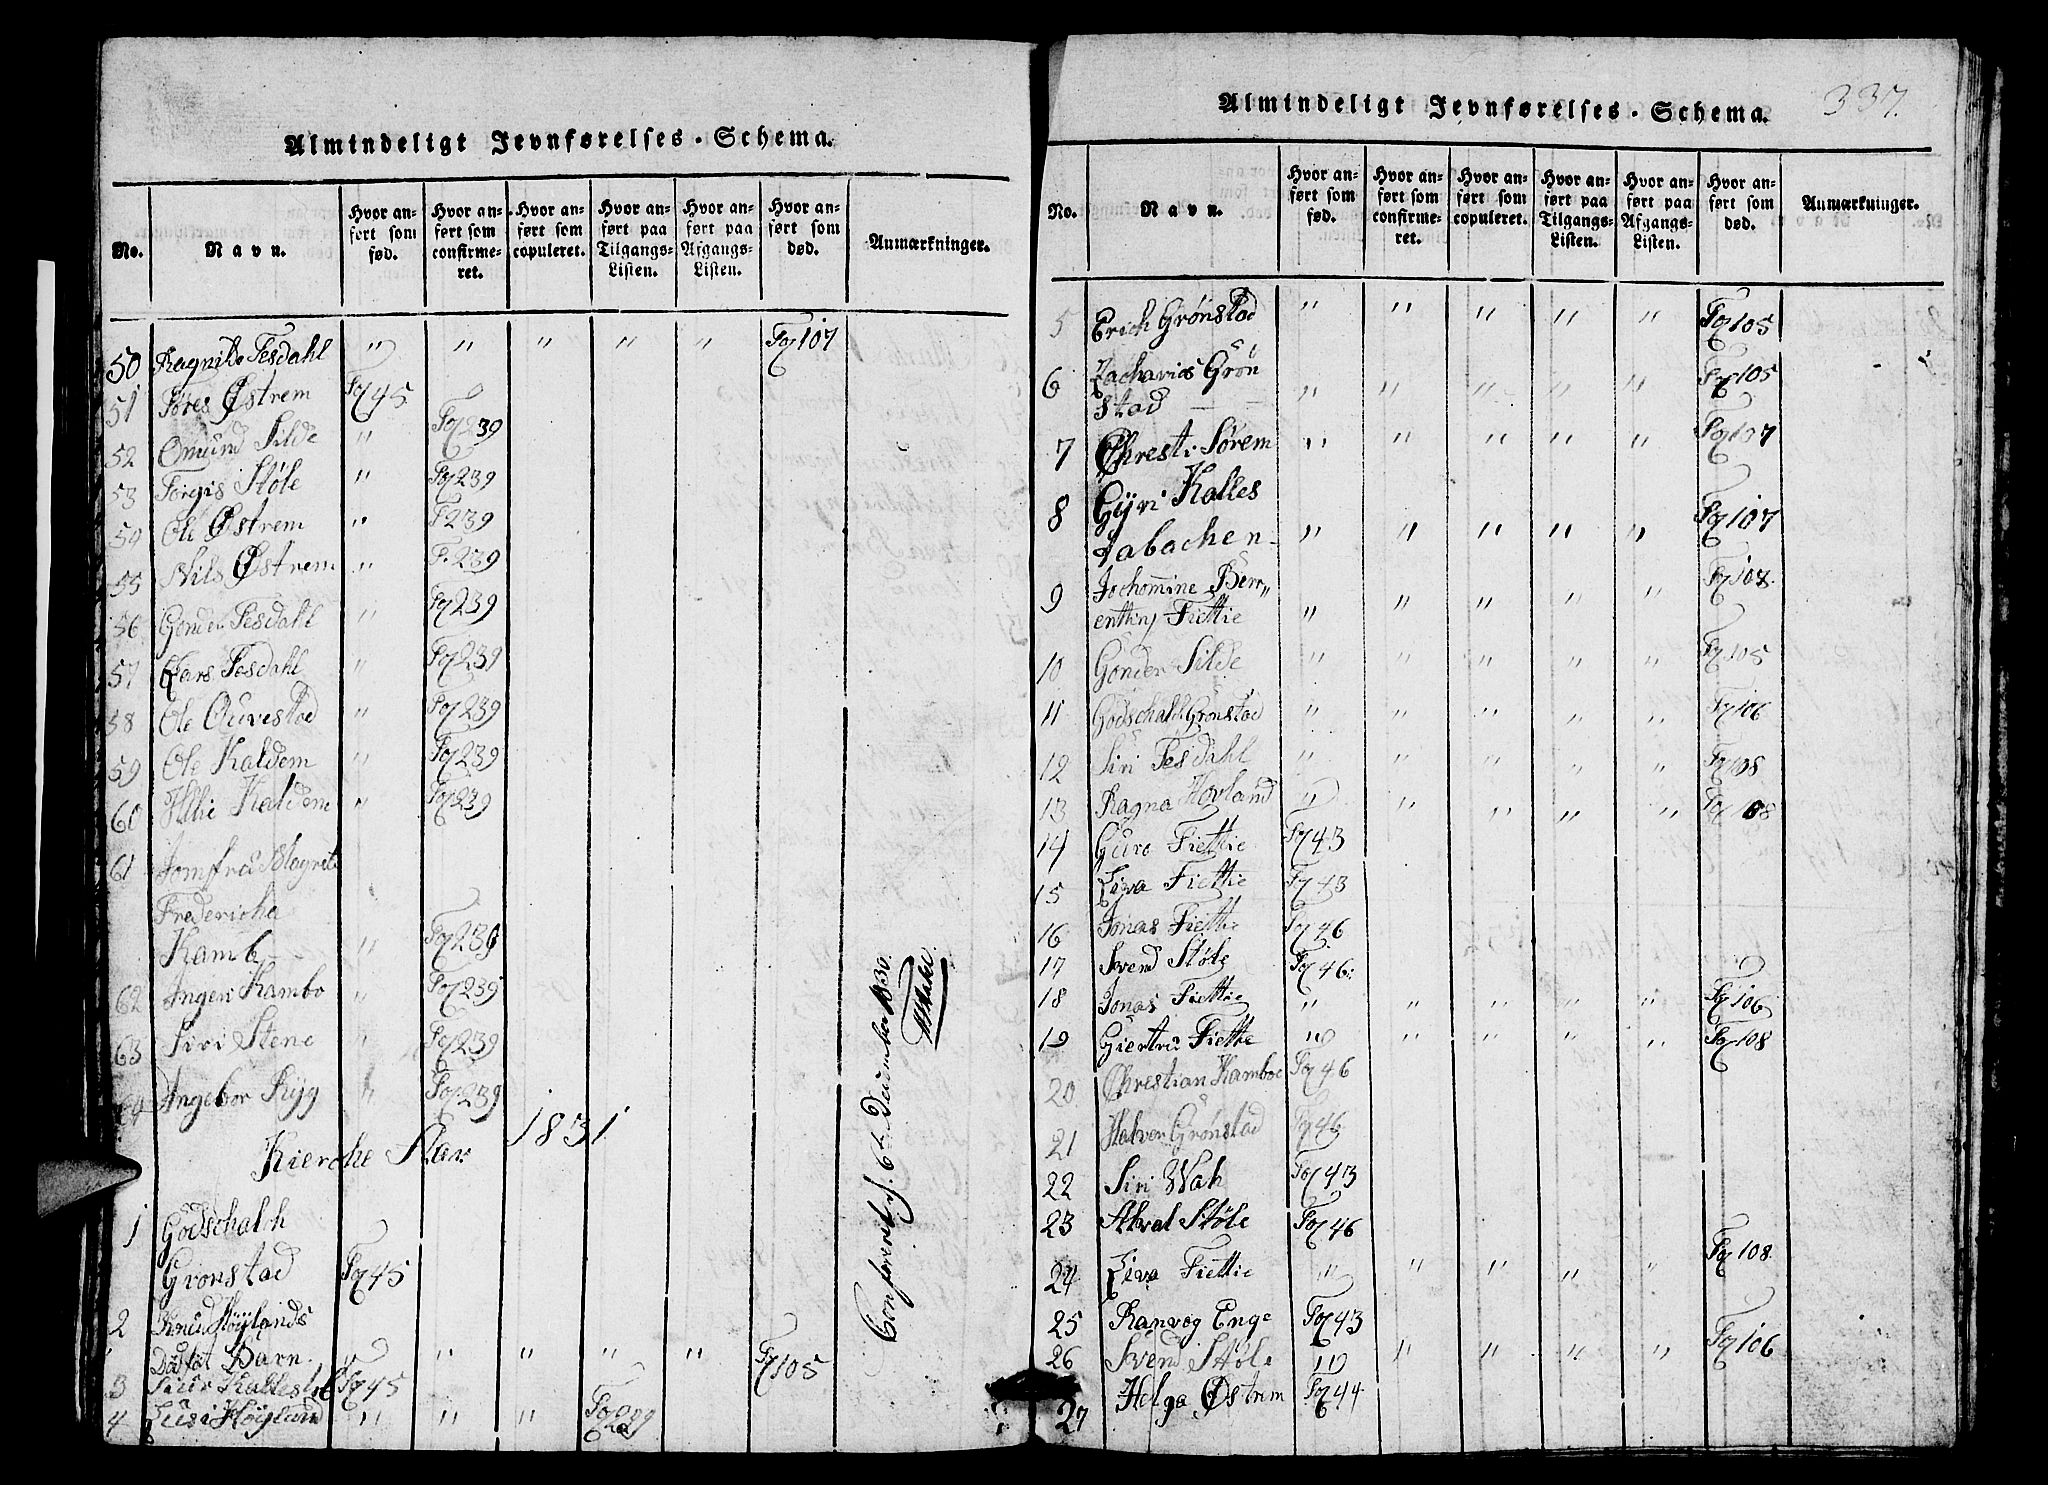 Almindeligt Jevnførelses-Schema.
No. Navn. Hvor anført som fød. Hvor anført som confirmeret. Hvor anført som copuleret. Hvor anført paa Tilgangs-Listen. Hvor anført paa Afgangs-Listen. Hvor anført som død. Anmærkninger.
50 Ragnilde Tesdahl " " " " " Fog 107
51 Tøres Østrem Fog 45
52 Omund Silde " Fog 239
53 Torgis Støle " Fog 239
54 Ole Østrem " F 239
55 Nils Østrem " F. 239
56 Gonder Tesdahl " Fog 239
57 Lars Tesdahl " Fog 239
58 Ole Qurestad " Fog 239
59 Ole Kaldem " Fog 239
60 Kaldem " Fog 239
61 Jomfru Magrete
Fredericha
Kamb " Fog 239
62 Ingeri Kambo " Fog 239
63 Siri Stene " Fog 239
64 Ingebor Ryg " Fog 239
Kierche Aar 1831
1 Godschalch
Grønstad Fog 45
2 Knud Høylands
Dødføt Barn " " " " " Fog 105
3 Siur Kallestol Fog 45
4 Høylund " " " Fog 229
Confereret d. 6te December 1830.
Almindeligt Jevnførelses-Schema. 337.
No. Navn. Hvor anført som fød. Hvor anført som confirmeret. Hvor anført som copuleret. Hvor anført paa Tilgangs-Listen. Hvor anført paa Afgangs-Listen. Hvor anført som død. Anmærkninger.
5 Erich Grønstad " " " " " Fog 105
6 Zacharias Grøn
stad " " " " " Fog 105
7 Chresti Sørem " " " " " Fog 107
8 Gÿri Kalles
tabachen " " " " " Fog 107
9 Jochomine Berr"
enthin Fiettie " " " " " Fog 108.
10 Gonder Silde " " " " " Fog 105
11 Godschalch Grønstad " " " " " Fog 106
12 Siri Tesdahl " " " " " Fog 108
13 Ragna Hovland " " " " " Fog 108
14 Guro Fiettie Fog 43
15 Liva Fiettie Fog 43
16 Jonas Fiettie Fog 46
17 Svend Støle Fog 46.
18 Jonas Fiettie " " " " " Fog 106
19 Giertru Fiettie " " " " " Fog 108
20 Chrestian Kamboe Fog 46
21 Halvor Grønstad Fog 46
22 Siri Wah Fog 43
23 Støle Fog 46
24 Liva Fiettie " " " " " Fog 108.
25 Ranvog Enge Fog 43
26 Svend Støle " " " " " Fog 106
27 Helga Østrem Fog 44